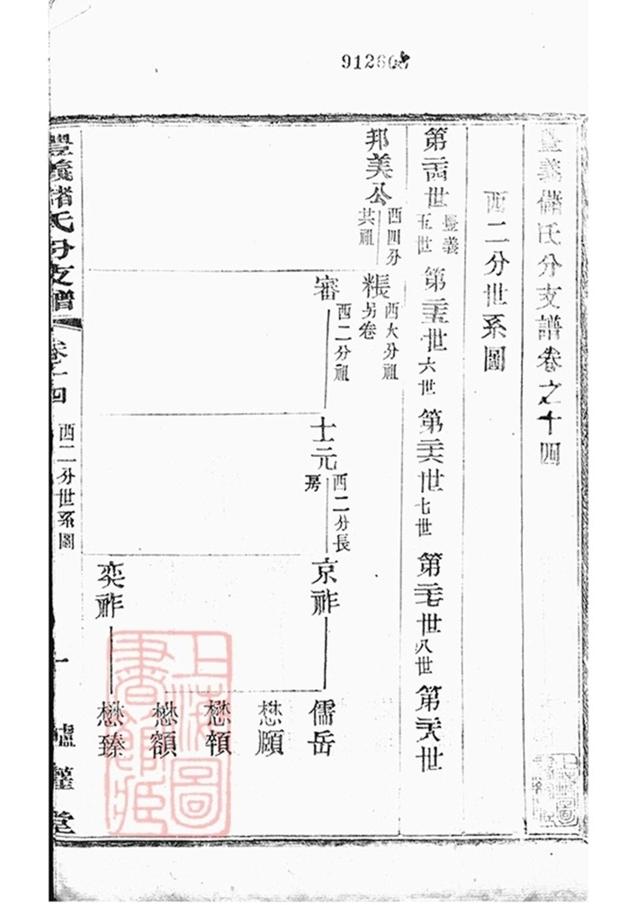 豐義儲氏分支譜卷之十四
西二分世系圖
第二十四世 豐義五世
第二十五世 六世
第二十六世 七世
第二十七世 八世
第二十八世
邦美公 西四分共祖
粻 西大分祖另卷
審 西二分祖
士元 西二分長房
京祚
儒岳
懋願
懋額
奕祚
懋臻
豐義儲氏分支譜
卷之十四
西二分世系圖
上海圖書館藏